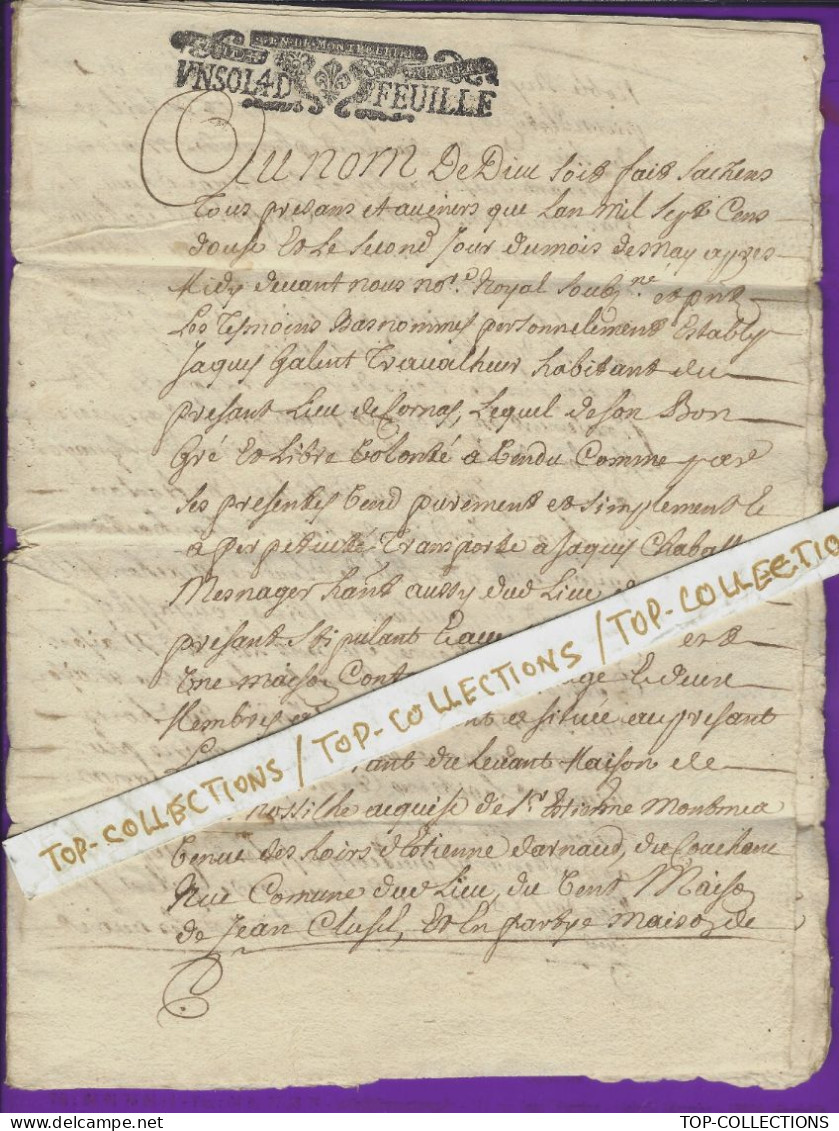 GEN·DE·MONTPELLIER
VNSOL4D FEUILLE
Au nom De Dieu soit fait sachens
Tous presans et aveniers que Lan Mil Sept Cens
douse Et Le second Jour du mois de may appres
Midy devant nous no.re Royal soubz.né et pnts
Les Tesmoins Basnommes personnelement Estably
Jaques Galent Travalheur habitant du
presant Lieu de Cornas, Lequel de son Bon
Gré Et Libre Volonté a Vendu Comme par
ses presentes Vend purement et simplement Et
a perpetuité Transporte a Jaques Chabatt
Mesnager hant aussy dud Lieu
presant stipulant
Une maison
Membres et situee au presant
du Levant Maison de
acquise de Sr Etienne
Tenue des hoirs d'Etienne darnaud, du Couchant
Rue Comune dud Lieu, du Vent Maiso
de Jean Clusel, Et En partye maison de
TOP-COLLECTIONS / TOP-COLLECTIONS / TOP-COLLECTION
TOP-COLLECTIONS